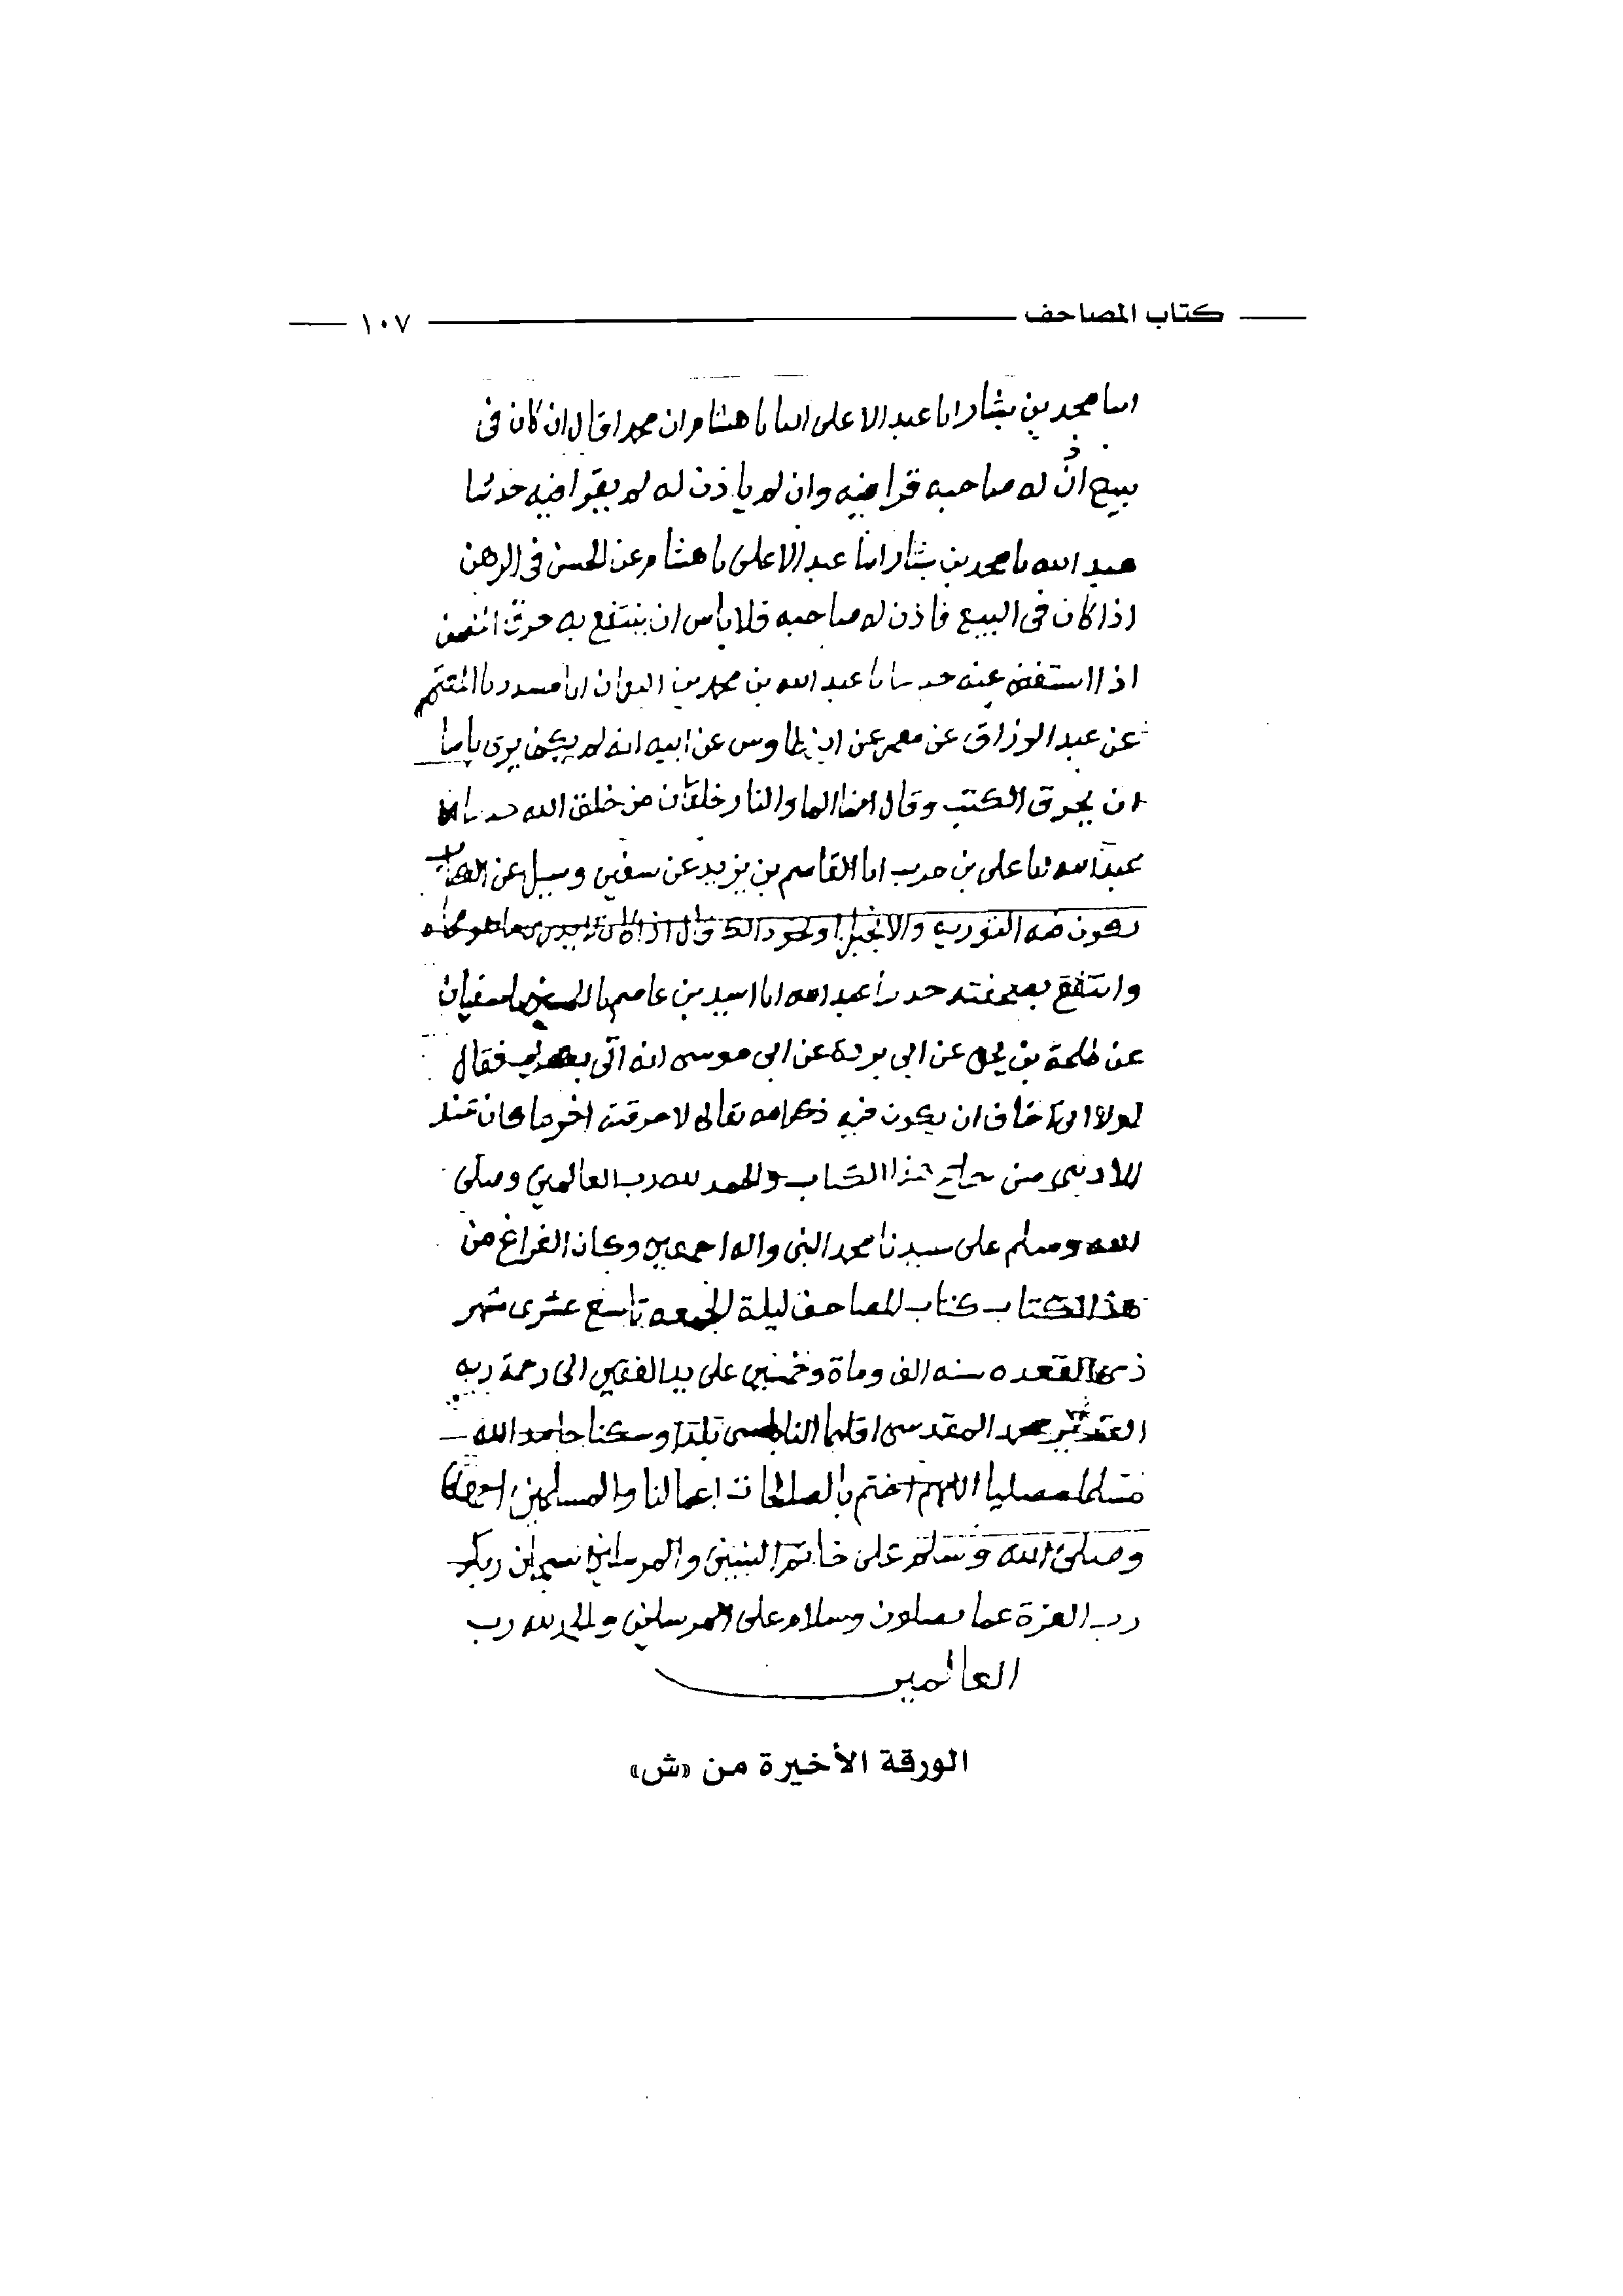 كتاب المصاحف ١٠٧
محمد بن بشار انا عبد الاعلى هشام ان محمدا قال ان كان فى
بيع اذن له صاحبه قرا فيه وان لم ياذن له لم يقرا فيه حدثنا
عبد الله نا محمد بن بشار عبد الاعلى نا هشام عن الحسن فى الرهن
اذا كان فى البيع فاذن له صاحبه فلا باس ان ينتفع به حرق
اذا استغنى عنه عبد الله بن محمد بن انا مسدد نا
عن عبد الرزاق عن معمر عن ابن طاوس عن ابيه انه لم يكن يرى باسا
ان يحرق الكتب وقال انما الما والنار خلقان من خلق الله
عبد الله نا على بن حرب انا القاسم بن يزيد عن سفين وسيل عن
يكون فيه التورية والانجيل او نحو ذلك قال اذا كان
وانتفع عبد الله انا اسيد بن عاصم نا سفيان
عن طلحة بن يحيى عن ابى بردة عن ابى موسى انه اتى فقال
لولا انى اخاف ان يكون فيه ذكر الله تعالى لاحرقته اخر ما كان عند
من هذا الكتاب والحمد لله رب العالمين وصلى
الله وسلم على سيدنا محمد النبى واله اجمعين وكان الفراغ من
هذا الكتاب كتاب المصاحف ليلة الجمعه تاسع عشرى شهر
ذى القعده سنه الف وماة وخمسين على يد الفقير الى رحمة ربه
القدير محمد المقدسى النابلسى بلدا وسكنا حامد الله
مسلما مصليا اللهم اختم بالصالحات اعمالنا والمسلمين
وصلى الله وسلم على خاتم النبيين والمرسلين سبحان ربك
رب العزة عما يصفون وسلام على المرسلين والحمد لله رب
العالمين
الورقة الأخيرة من «ش»